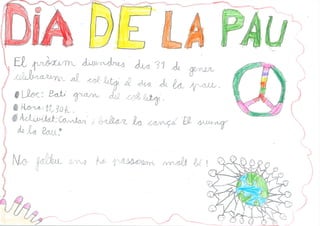 DIA DE LA PAU
El pròxim divendres dia 31 de gener
celebrarem al col·legi el dia de la pau.
Lloc: Pati gran del col·legi.
Hora:
Activitat: Cantar i ballar la cançó El swing
de la Pau.
No falteu ens ho passarem molt bé!